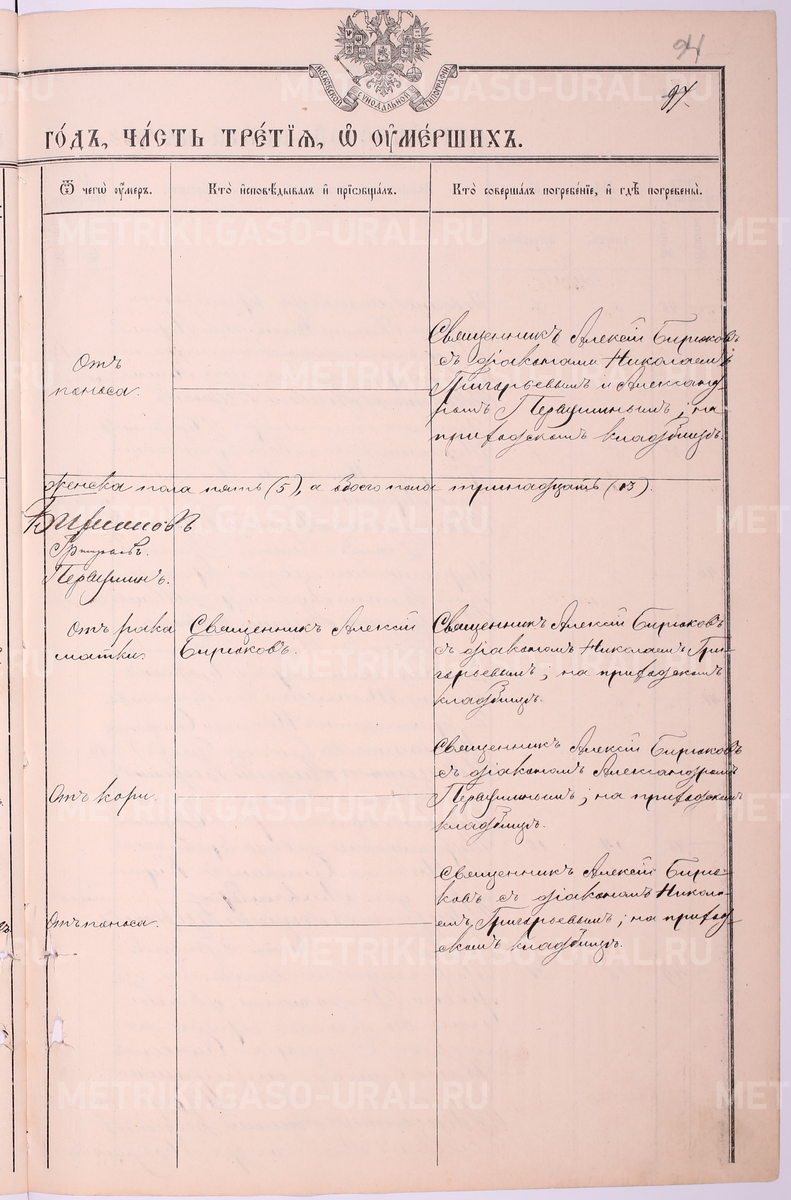 94
97.
МОСКОВСКОЙ СѴНОДАЛЬНОЙ ТИПОГРАФІИ
ГО́ДЪ, ЧА́СТЬ ТРЕ́ТІЯ, Ѡ ОУМЕ́РШИХЪ.
Ѿ чегѡ̀ оу́меръ.
Кто̀ и҆сповѣ́дывалъ и҆ прїѻбща́лъ.
Кто̀ соверша́лъ погребе́нїе, и҆ гдѣ̀ погребены̀.
Отъ
поноса.
Священникъ Алексій Бирюковъ
съ діаконами Николаемъ
Григорьевымъ и Александ
ромъ Первушинымъ; на
приходскомъ кладбищѣ.
женска пола пять (5), а обоего пола тринадцать (13).
Бирюковъ
Григорьевъ.
Первушинъ.
Отъ рака
матки.
Священникъ Алексій
Бирюковъ.
Священникъ Алексій Бирюковъ
съ діакономъ Николаемъ Гри-
горьевымъ; на приходскомъ
кладбищѣ.
Отъ кори.
Священникъ Алексій Бирюковъ
съ діакономъ Александромъ
Первушинымъ; на приходском
кладбищѣ.
Отъ поноса.
Священникъ Алексій Бирю-
ковъ съ діакономъ Никола-
емъ Григорьевымъ; на приход-
скомъ кладбищѣ.
METRIKI.GASO-URAL.RU